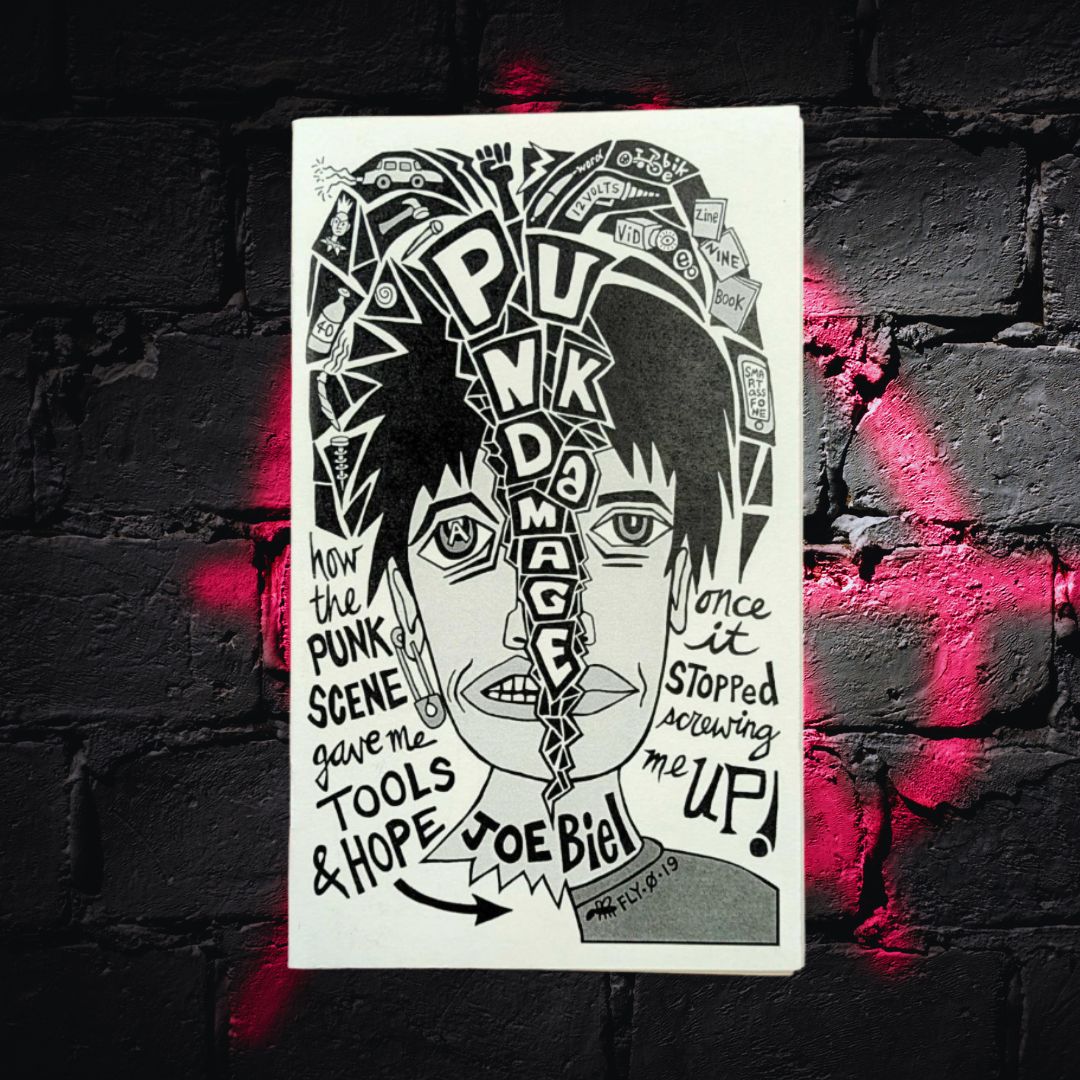 word
bike
12 VOLTS
ViD
Zine
NINE
BOOK
40
SMARTASS FONE
PUNK
DaMAGE
A
U
how
the
PUNK
SCENE
gave me
TOOLS
& HOPE
once
it
STOPPed
screwing
me UP!
JOE Biel
FLY·Ø·19